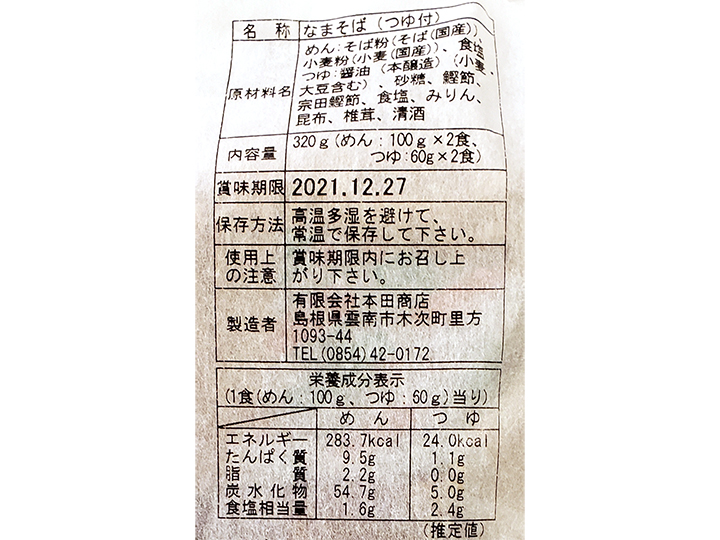 名称 なまそば（つゆ付）
原材料名 めん：そば粉(そば(国産))、
小麦粉(小麦(国産))、食塩
つゆ：醤油（本醸造）（小麦、
大豆含む）、砂糖、鰹節、
宗田鰹節、食塩、みりん、
昆布、椎茸、清酒
内容量 320g(めん：100g×2食、
つゆ：60g×2食)
賞味期限 2021.12.27
保存方法 高温多湿を避けて、
常温で保存して下さい。
使用上の注意 賞味期限内にお召し上
がり下さい。
製造者 有限会社本田商店
島根県雲南市木次町里方
1093-44
TEL(0854)42-0172
栄養成分表示
(1食(めん：100g、つゆ：60g)当り)
めん つゆ
エネルギー 283.7kcal 24.0kcal
たんぱく質 9.5g 1.1g
脂質 2.2g 0.0g
炭水化物 54.7g 5.0g
食塩相当量 1.6g 2.4g
(推定値)